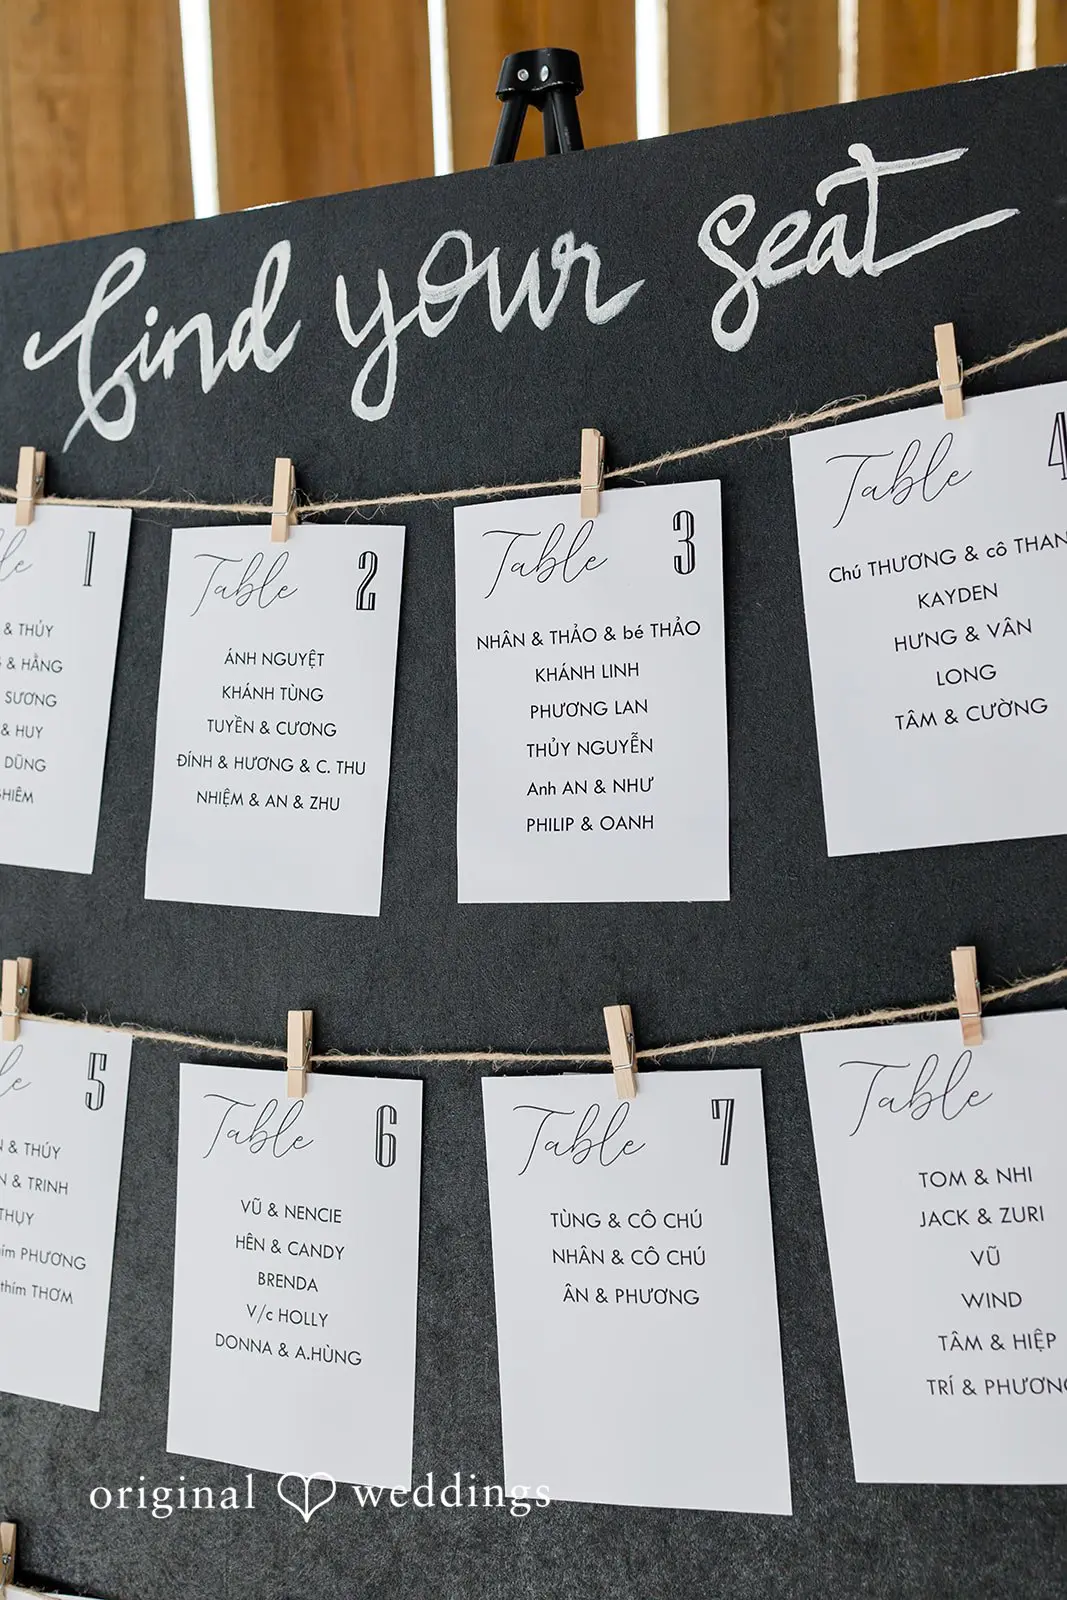 find your seat
1
& THỦY
& HẰNG
SƯƠNG
& HUY
DŨNG
Table 2
ÁNH NGUYỆT
KHÁNH TÙNG
TUYỀN & CƯƠNG
ĐÍNH & HƯƠNG & C. THU
NHIỆM & AN & ZHU
Table 3
NHÂN & THẢO & bé THẢO
KHÁNH LINH
PHƯƠNG LAN
THỦY NGUYỄN
Anh AN & NHƯ
PHILIP & OANH
Table 4
Chú THƯƠNG & cô THAN
KAYDEN
HƯNG & VÂN
LONG
TÂM & CƯỜNG
5
& THÚY
& TRINH
THỤY
PHƯƠNG
thím THƠM
Table 6
VŨ & NENCIE
HÊN & CANDY
BRENDA
V/c HOLLY
DONNA & A.HÙNG
Table 7
TÙNG & CÔ CHÚ
NHÂN & CÔ CHÚ
ÂN & PHƯƠNG
Table
TOM & NHI
JACK & ZURI
VŨ
WIND
TÂM & HIỆP
TRÍ & PHƯƠNG
original weddings